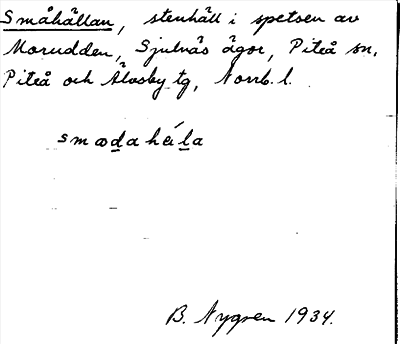 Småhällan, stenhäll i spetsen av
Morudden, Sjulnäs ägor, Piteå sn,
Piteå och Älvsby tg, Norrb. l.
B. Nygren 1934.